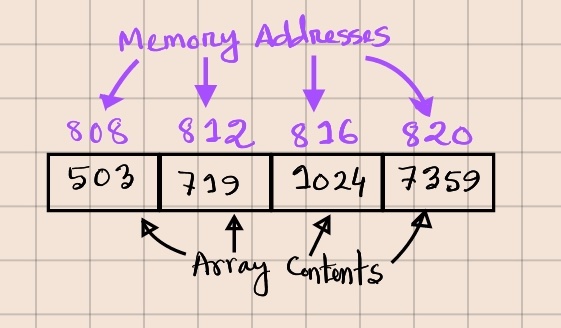 Memory Addresses
808 812 816 820
503 719 1024 7359
Array Contents